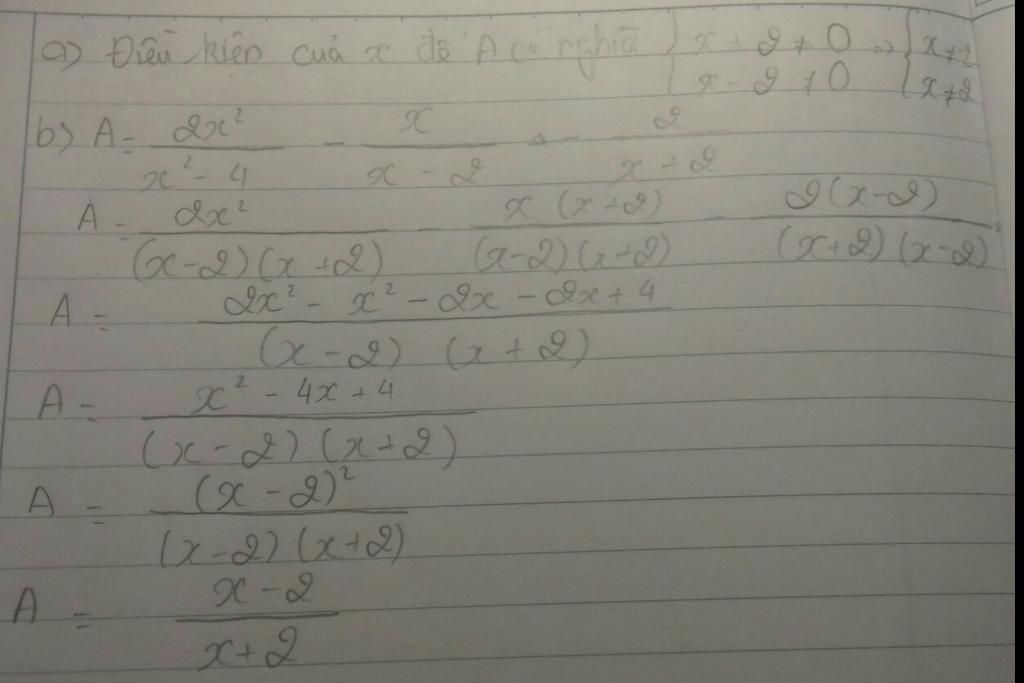 a) Điều kiện của x để A có nghĩa { x + 2 ≠ 0 => { x ≠ -2
x - 2 ≠ 0 x ≠ 2
b) A = 2x² / x² - 4 - x / x - 2 - 2 / x + 2
A = 2x² / (x-2)(x+2) - x(x+2) / (x-2)(x+2) - 2(x-2) / (x+2)(x-2)
A = 2x² - x² - 2x - 2x + 4 / (x-2)(x+2)
A = x² - 4x + 4 / (x-2)(x+2)
A = (x-2)² / (x-2)(x+2)
A = x-2 / x+2